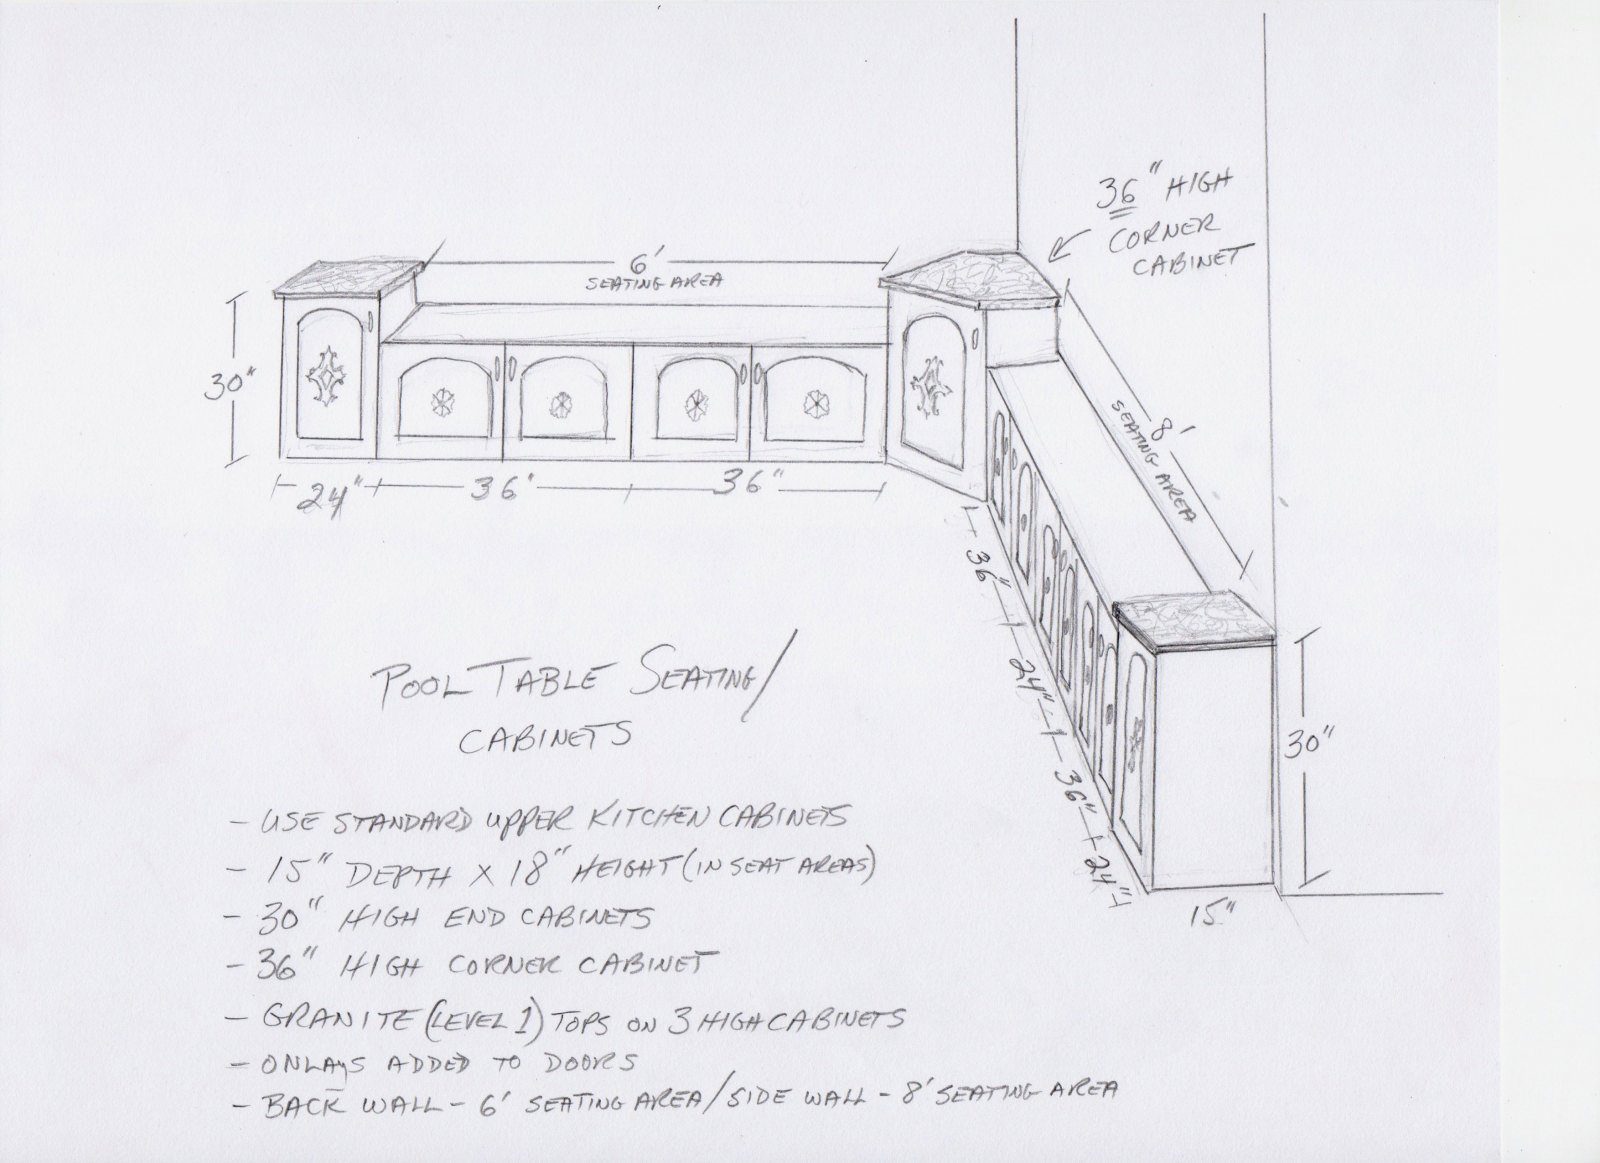 36" HIGH
CORNER
CABINET
6'
SEATING AREA
30"
24"
36'
36"
8'
SEATING AREA
36"
24"
36"
24"
30"
15"
POOL TABLE SEATING/
CABINETS
- USE STANDARD UPPER KITCHEN CABINETS
- 15" DEPTH X 18" HEIGHT (IN SEAT AREAS)
- 30" HIGH END CABINETS
- 36" HIGH CORNER CABINET
- GRANITE (LEVEL 1) TOPS ON 3 HIGH CABINETS
- ONLAYS ADDED TO DOORS
- BACK WALL - 6' SEATING AREA/SIDE WALL - 8' SEATING AREA